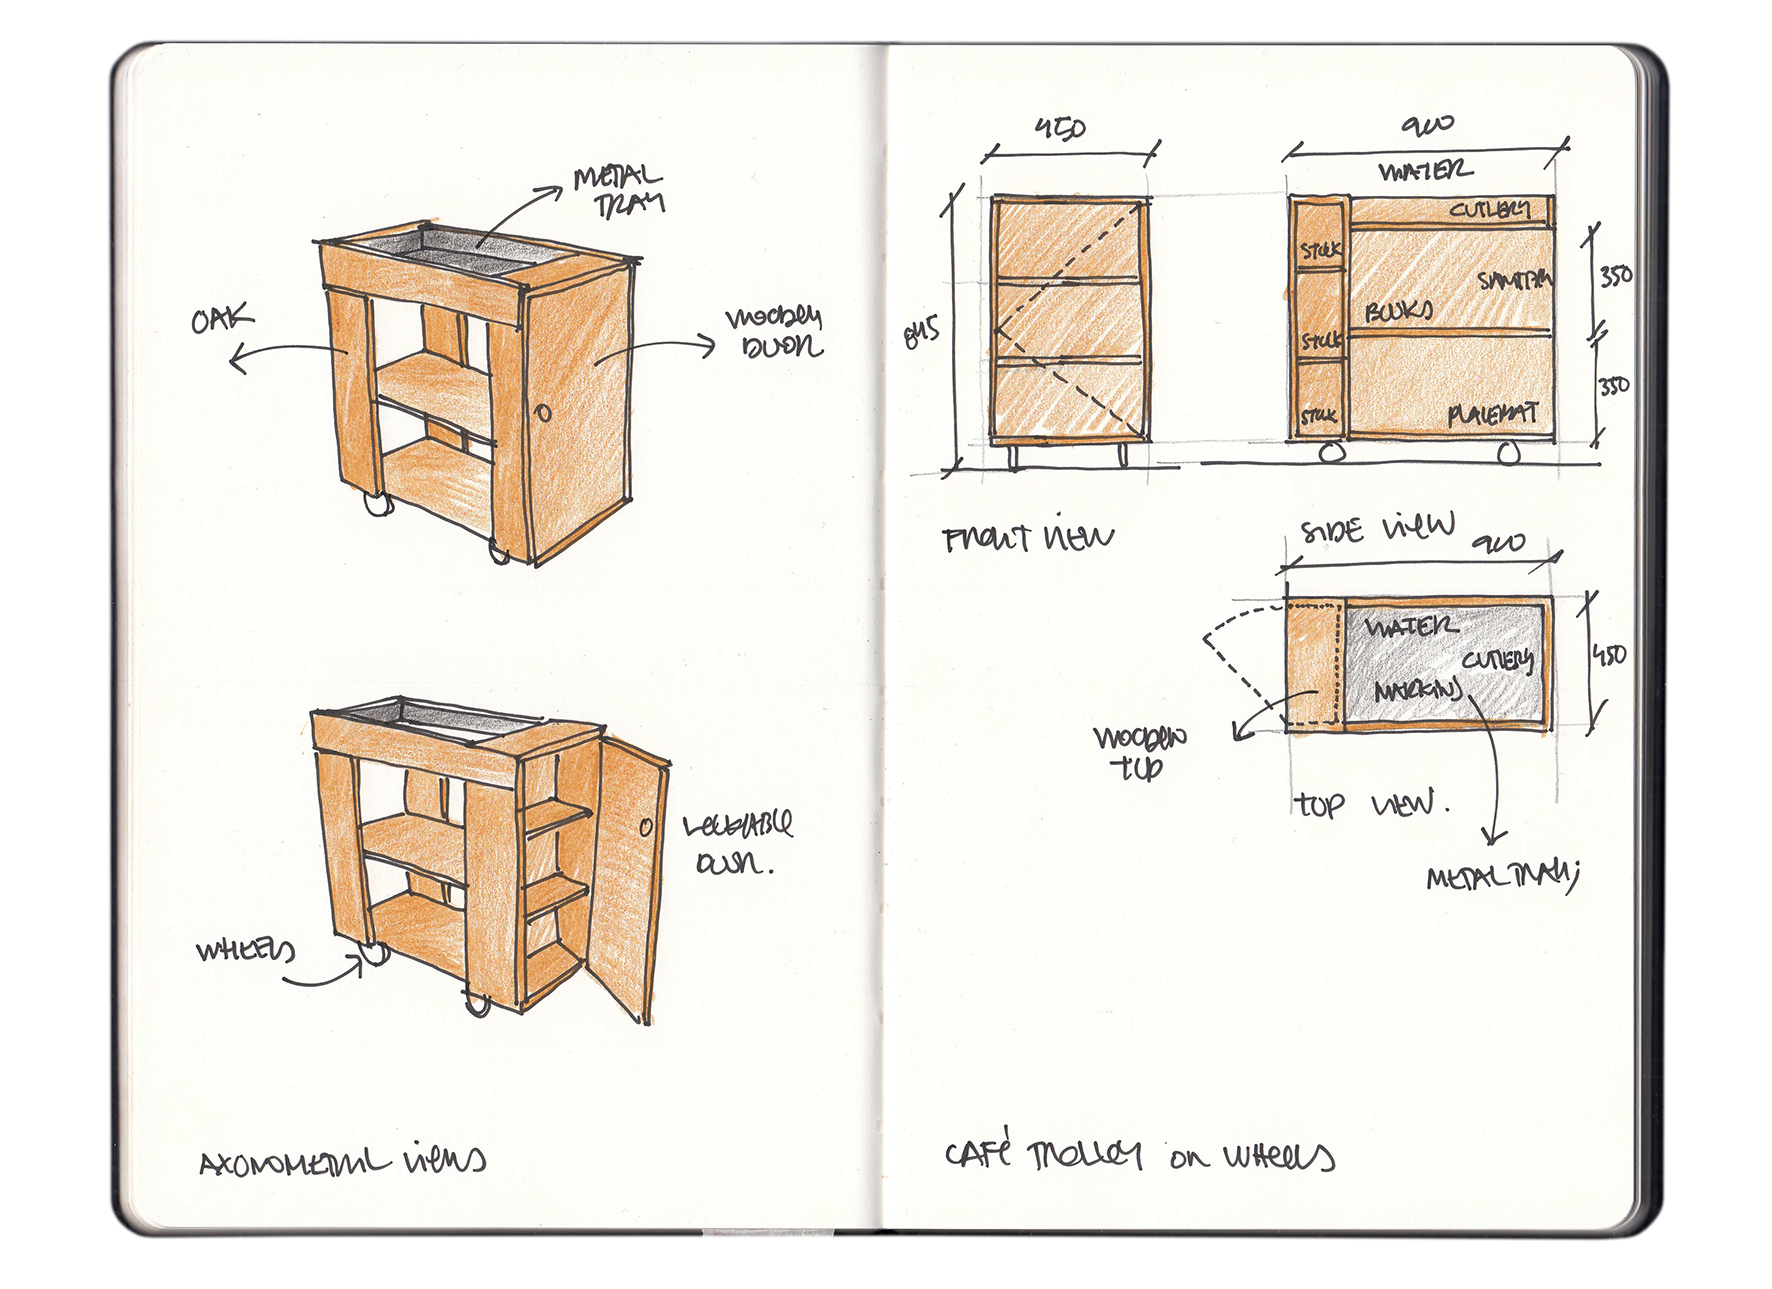 METAL
TRAY
OAK
WOODEN
DOOR
LOCKABLE
DOOR.
WHEELS
AXONOMETRIC VIEWS
450
900
WATER
CUTLERY
STOCK
350
BOOKS
845
STOCK
350
STOCK
PLACEMAT
FRONT VIEW
SIDE VIEW
900
WATER
CUTLERY
450
WOODEN
TOP
TOP VIEW.
METAL TRAY
CAFÉ TROLLEY ON WHEELS